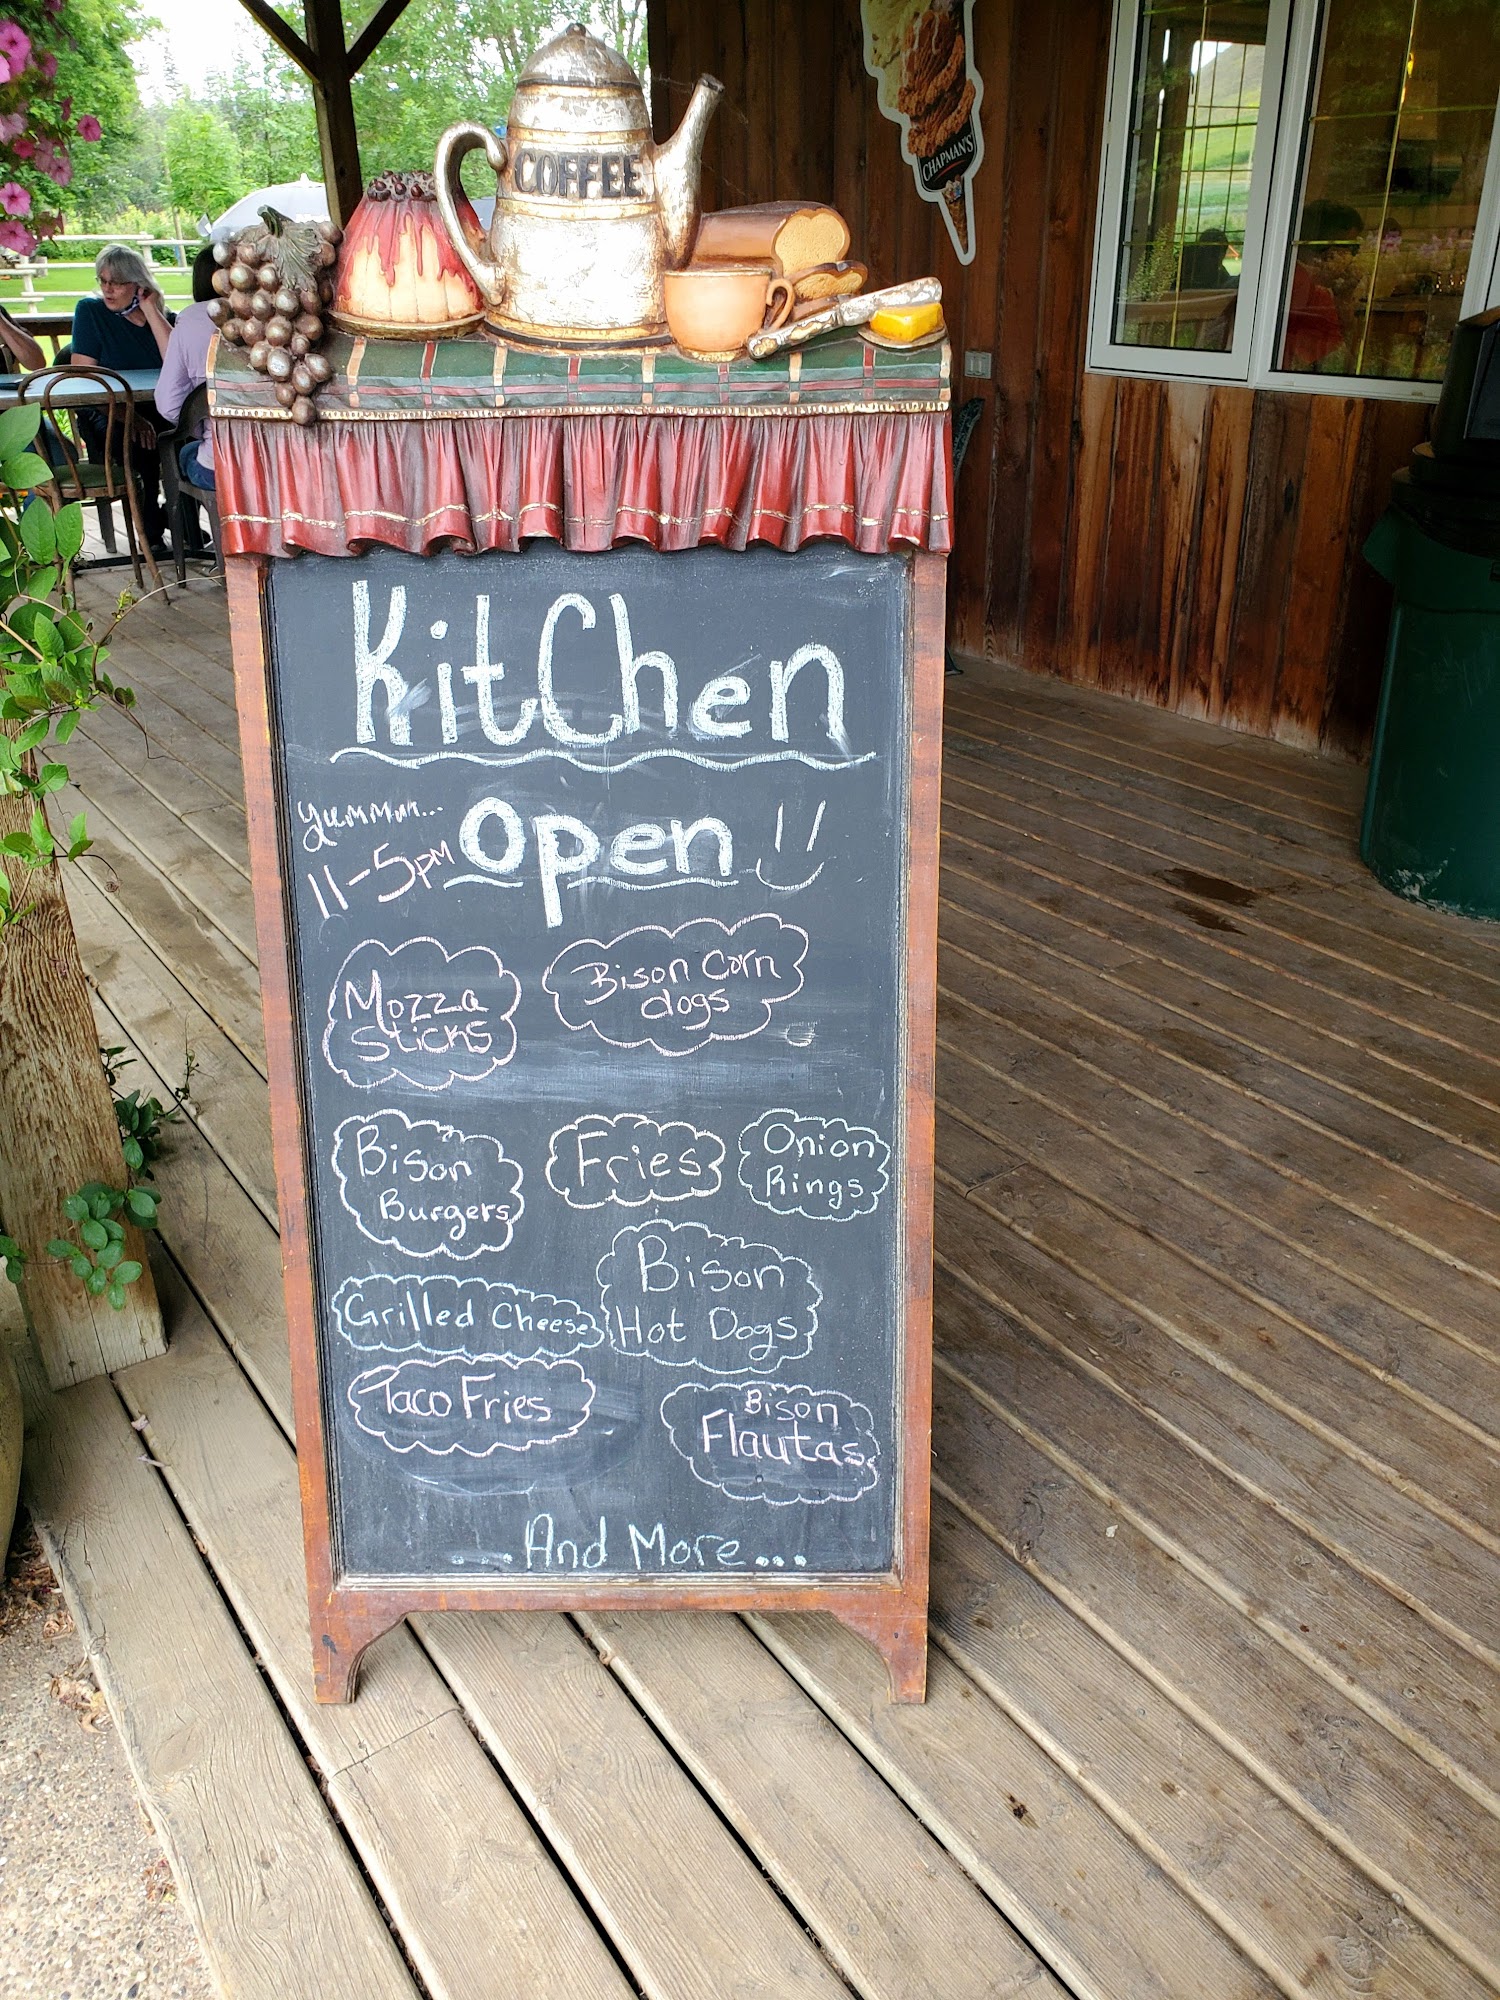 COFFEE
CHAPMAN'S
KitChen
yummm...
11-5pm
open
Mozza
Sticks
Bison Corn
dogs
Bison
Burgers
Fries
Onion
Rings
Grilled Cheese
Bison
Hot Dogs
Taco Fries
Bison
Flautas
...And More...